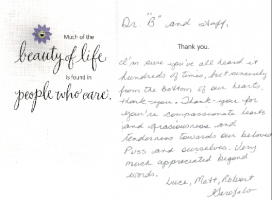 Much of the
beauty of life
is found in
people who care.
Dr. "B" and Staff,
Thank you.
I'm sure you've all heard it
hundreds of times, but sincerely
from the bottom of our hearts,
thank-you. Thank-you for
you're compassionate hearts
and graciousness and
tenderness towards our beloved
Puss and ourselves. Very
much appreciated beyond
words.
Luce, Matt, Robert